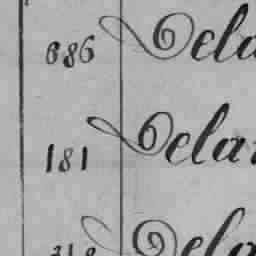 686 Dela
181 Dela
Dela